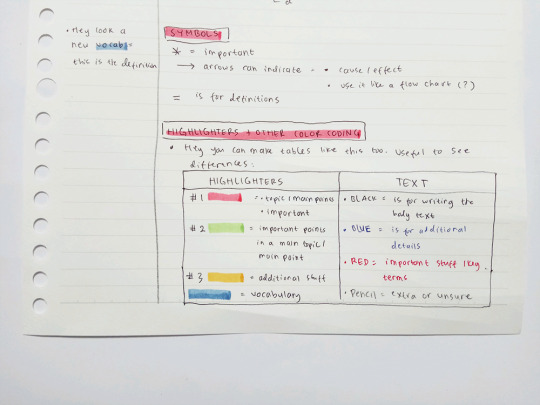 • Hey look a
new vocab =
this is the definition
SYMBOLS
* = important
→ arrows can indicate = • cause/effect
• use it like a flow chart (?)
= is for definitions
HIGHLIGHTERS + OTHER COLOR CODING
• Hey you can make tables like this too. Useful to see
differences:
HIGHLIGHTERS
#1 = • topic/main points
• important
#2 = important points
in a main topic/
main point
#3 = additional stuff
= vocabulary
TEXT
• BLACK = is for writing the
body text
• BLUE = is for additional
details
• RED = important stuff/key
terms
• Pencil = extra or unsure